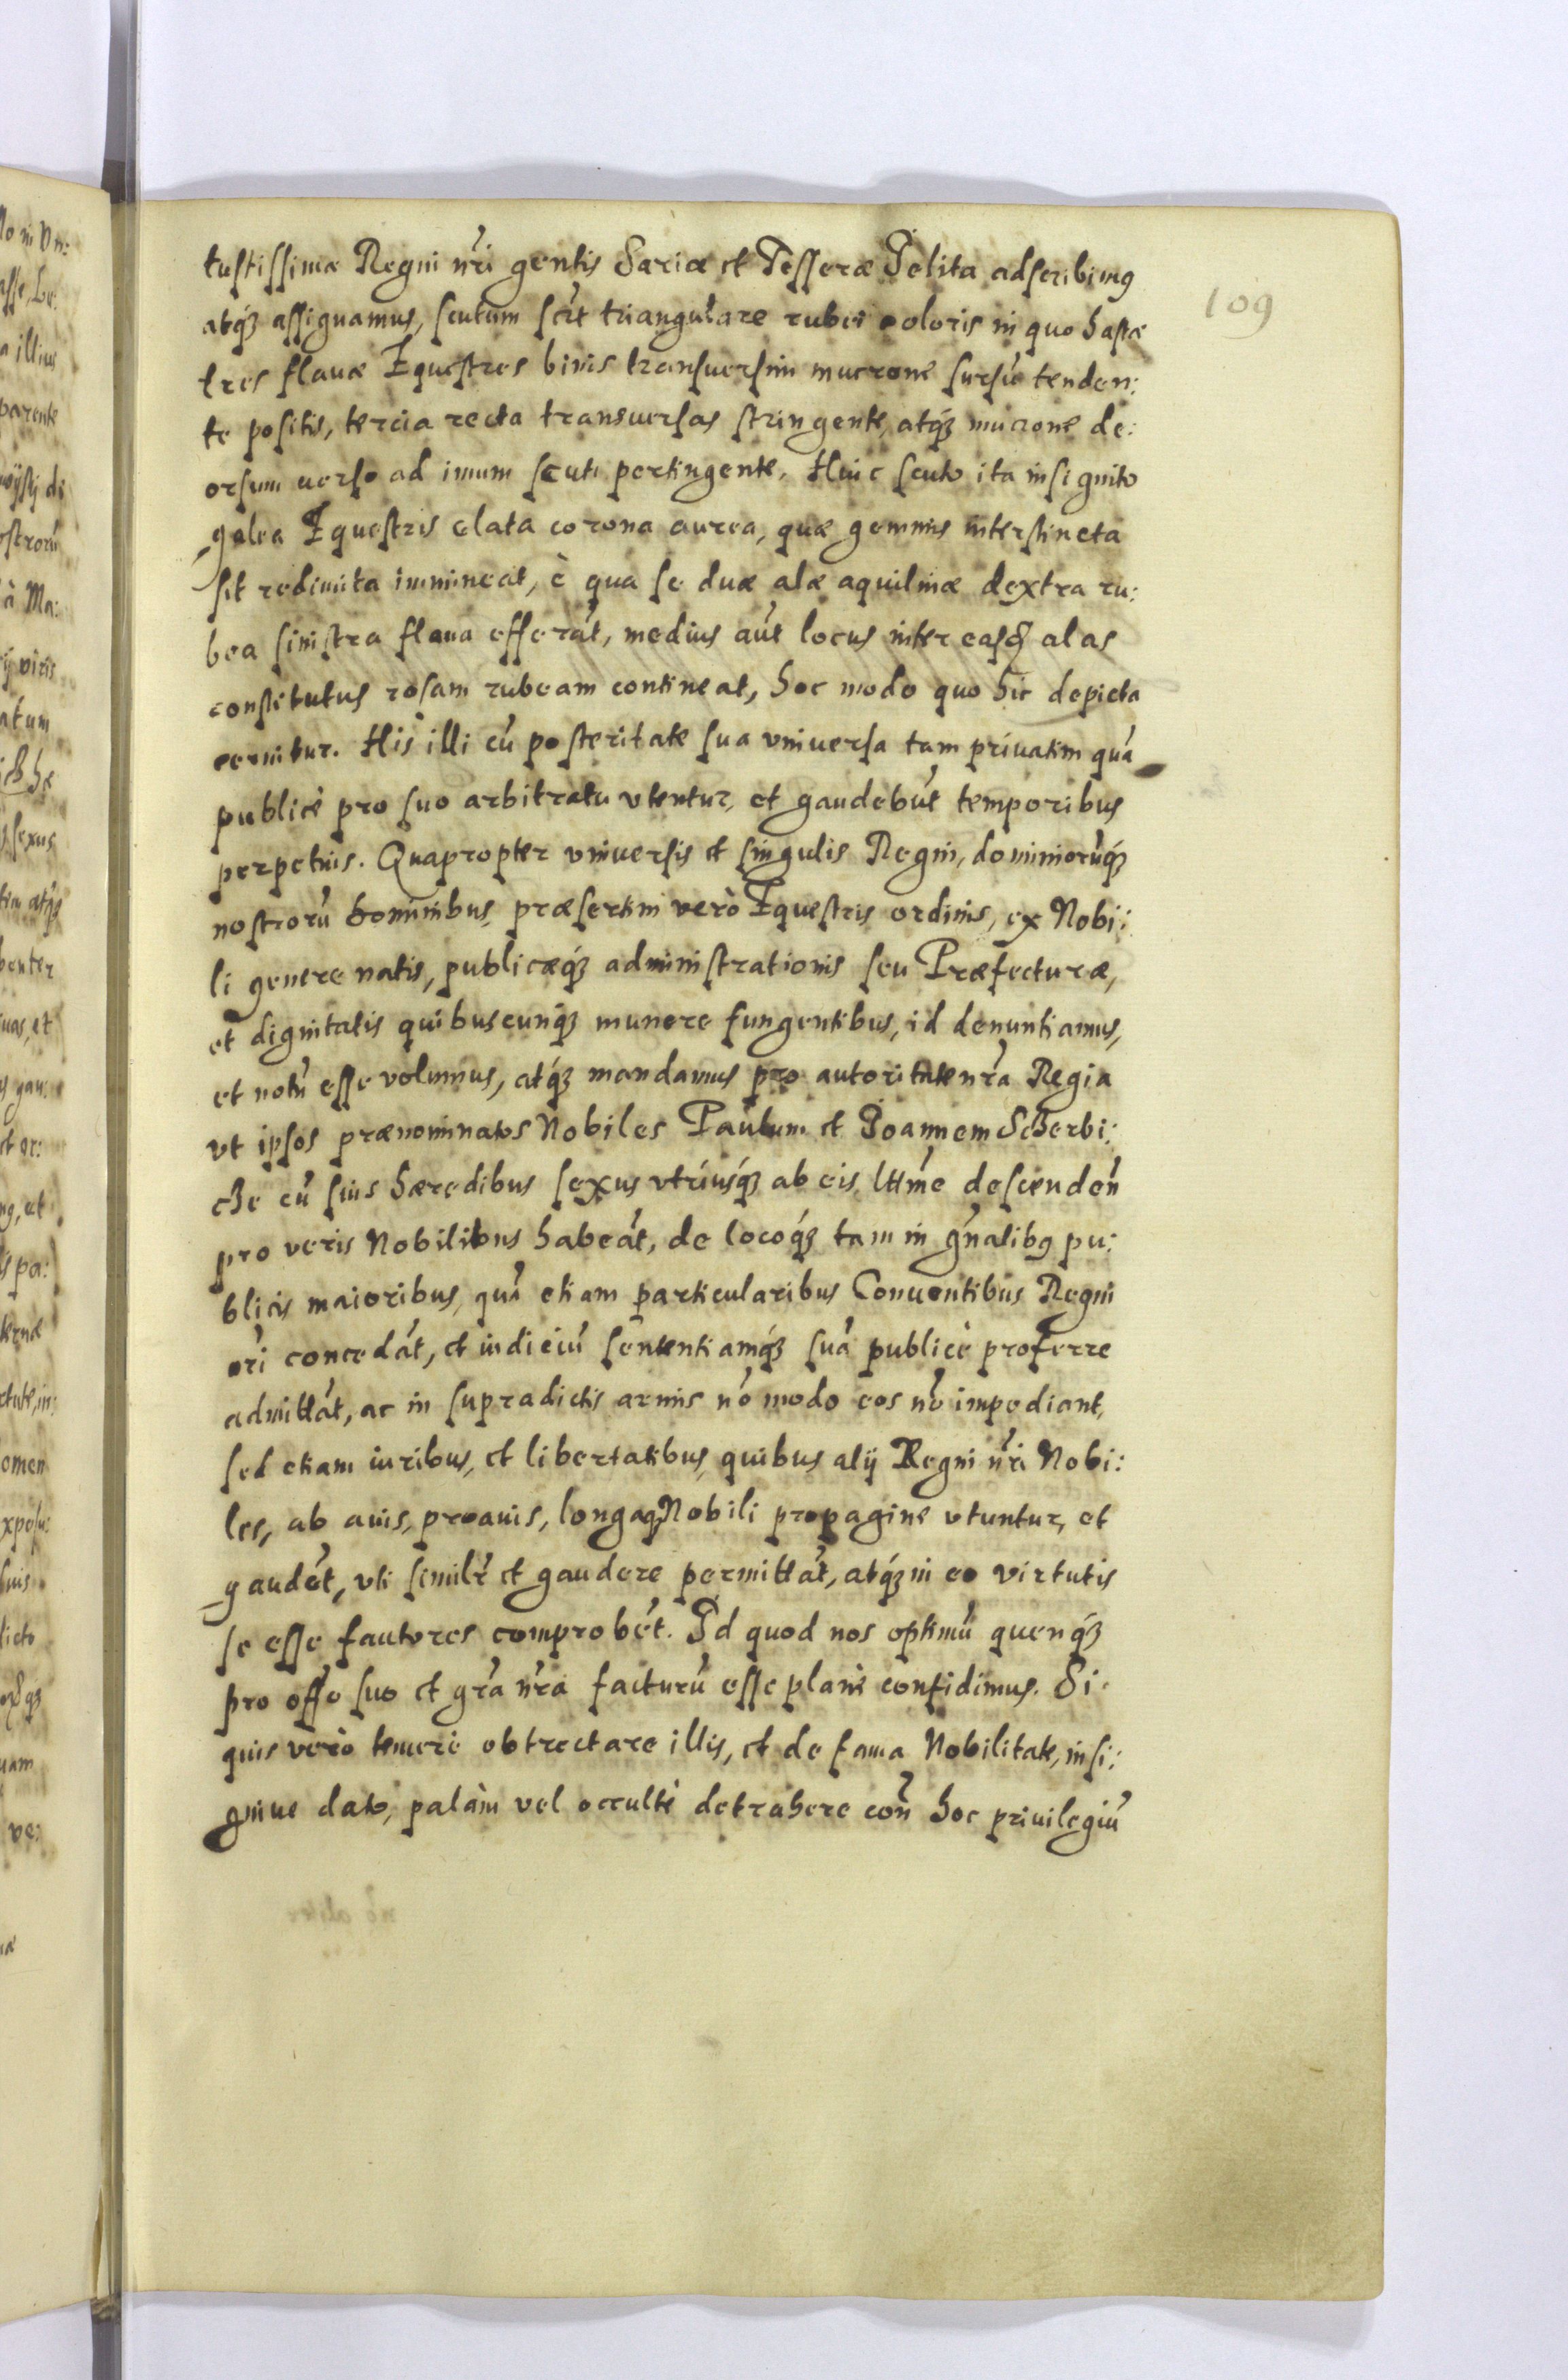 tustissimæ Regni nr̃i gentis Sariæ et Tesseræ Jelita adscribimus
109
atq́ꝫ assignamus, scutum sc̃lt triangulare rubei coloris in quo hastæ
tres flauæ Equestres binis transuersim mucrone sursũ tenden:
te positis, tercia recta transuersas stringente, atq́ꝫ mucrone de:
orsum uerso ad imum scuti pertingente. Huic scuto ita insignito
galea Equestris elata corona aurea, quæ gemmis interstincta
sit redimita immineat, è qua se duæ alæ aquilinæ dextra ru:
bea sinistra flaua efferãt, medius aũt locus inter easdꝫ alas
constitutus rosam rubeam contineat, hoc modo quo hic depicta
cernitur. His illi cũ posteritate sua vniuersa tam priuatim quã
publicè pro suo arbitratu vtentur, et gaudebũt temporibus
perpetuis. Quapropter vniuersis et singulis Regni, dominiorũq́ꝫ
nostrorũ hominibus, præsertim verò Equestris ordinis, ex Nobi:
li genere natis, publicæq́ꝫ administrationis seu Præfecturæ,
et dignitatis quibuscunq́ꝫ munere fungentibus, id denuntiamus,
et notũ esse volumus, atq́ꝫ mandamus pro autoritate nr̃a Regia
vt ipsos prænominatos Nobiles Paulum et Joannem Scherbi:
che cũ suis hæredibus sexus vtriusq́ꝫ ab eis lttm̃e descendeñ
pro veris Nobilibus habeãt, de locoq́ꝫ tam in gñalibus pu:
blicis maioribus, quã etiam particularibus Conuentibus Regni
nr̃i concedãt, et iudiciũ sententiamq́ꝫ suã publicè proferre
admittãt, ac in supradictis armis nõ modo eos nõ impediant,
sed etiam iuribus, et libertatibus, quibus alij Regni nr̃i Nobi:
les, ab auis, proauis, longaqꝫ Nobili propagine vtuntur, et
gaudẽt, vti similr̃ et gaudere permittãt, atq́ꝫ in eo virtutis
se esse fautores comprobẽt. Id quod nos optimũ quenq́ꝫ
pro offo suo et gr̃a nr̃a facturũ esse planè confidimus. Si
quis verò temerè obtrectare illis, et de fama Nobilitate, insi:
gniue dato, palàm vel occultè detrahere coñ hoc priuilegiũ